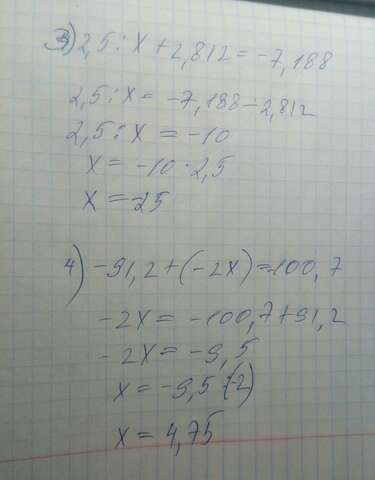 3) 2,5:x+2,812=-7,188
2,5:x= -7,188-2,812
2,5:x = -10
x= -10·2,5
x=-25
4) -91,2+(-2x)=-100,7
-2x= -100,7+91,2
-2x=-9,5
x=-9,5:(-2)
x=4,75